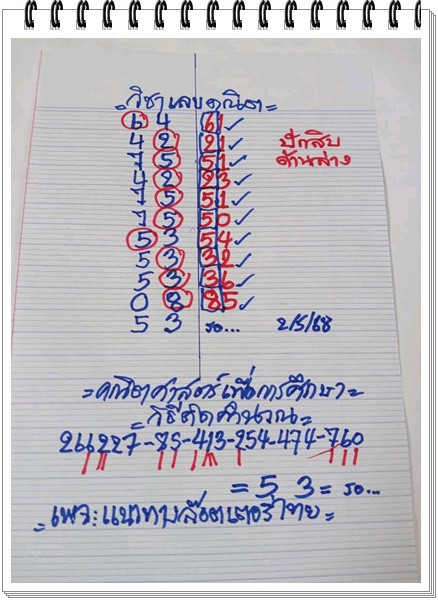 = วิชาเลขคณิต =
6 4 61 ✓
4 2 21 ✓ ปักสิบ
1 5 51 ✓ ด้านล่าง
4 2 23 ✓
1 5 51 ✓
1 5 50 ✓
5 3 54 ✓
5 3 32 ✓
5 3 36 ✓
0 8 85 ✓
5 3 รอ... 2/5/68
= คณิตศาสตร์เพื่อการศึกษา =
= วิธีคิดคำนวณ =
266227-85-413-254-474-760
= 5 3 = รอ...
= เพจ:แนวทางล๊อตเตอรี่ไทย =